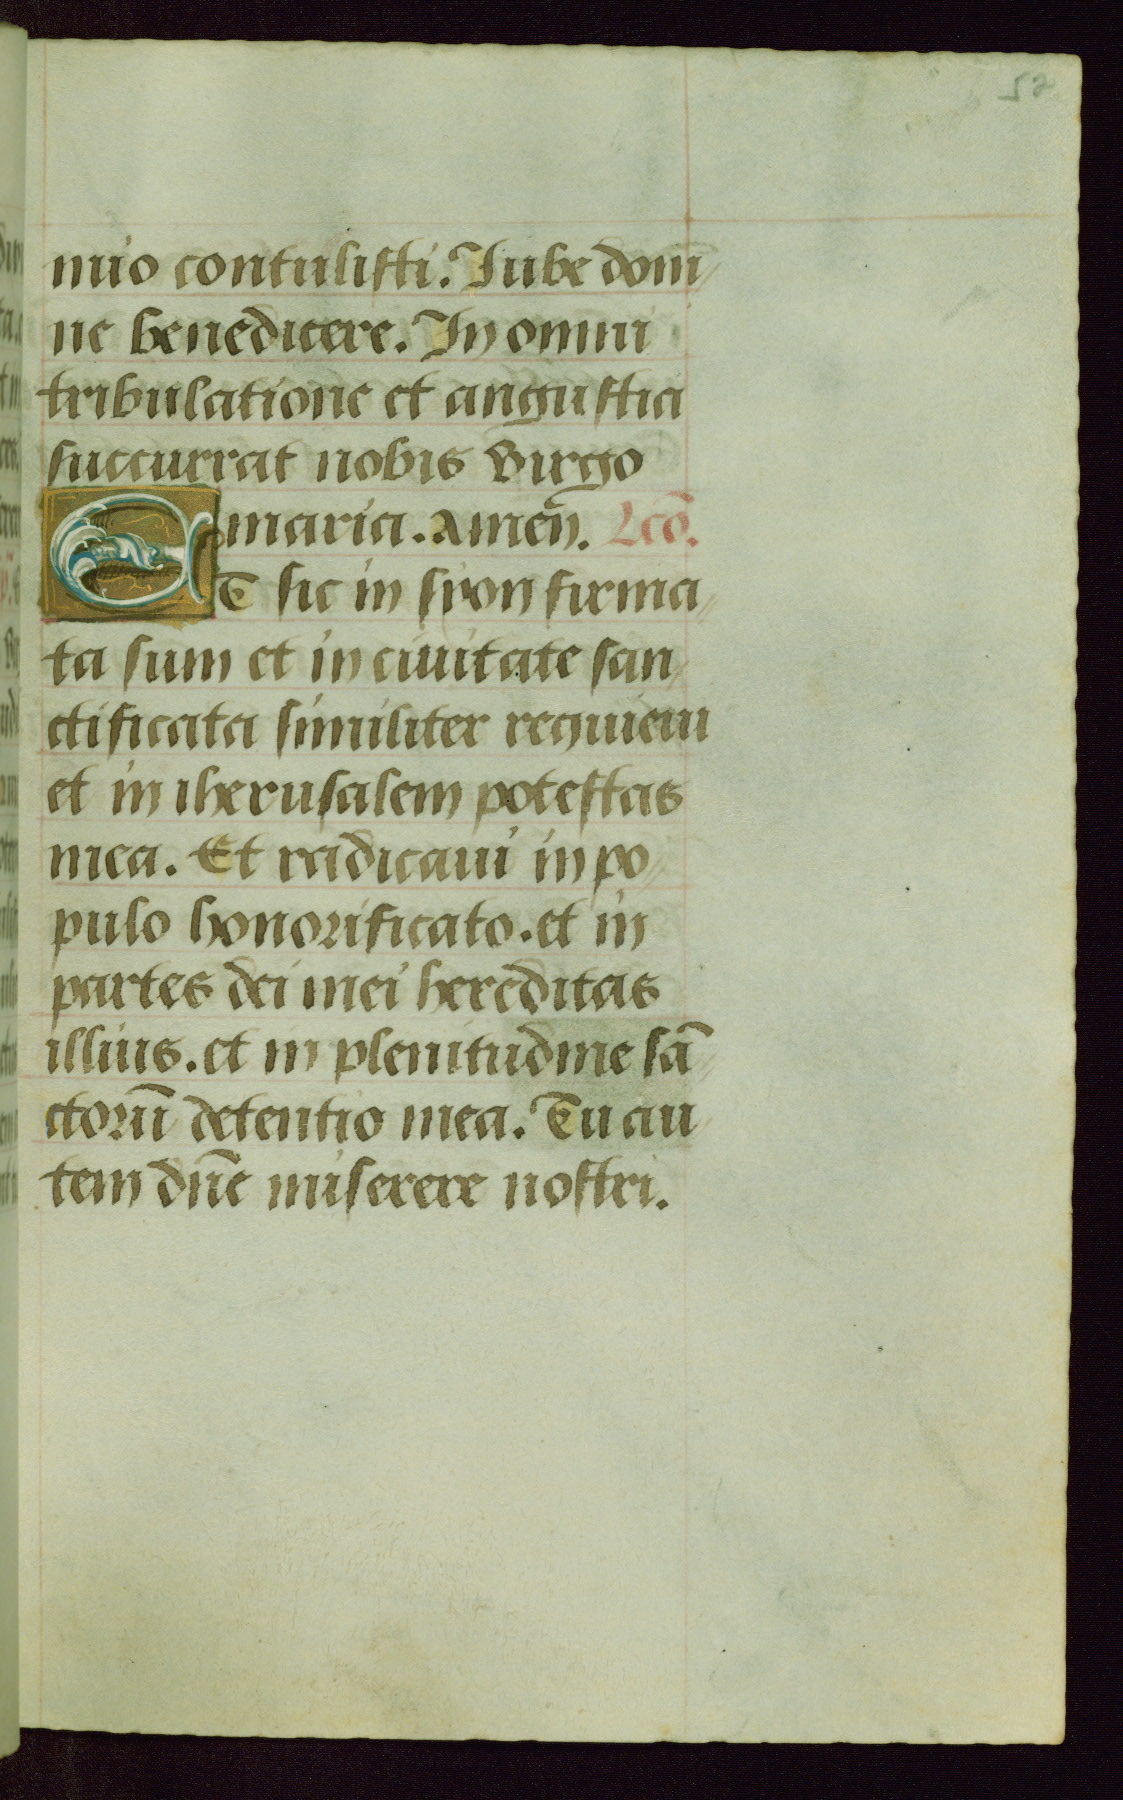 muo contulisti. Iube domi
ne benedicere. In omni
tribulatione et angustia
succurrat nobis virgo
maria. Amen̄. Lcō.
ET sic in syon firma
ta sum et in ciuitate san
ctificata similiter requieui
et in iherusalem potestas
mea. Et radicaui in po
pulo honorificato. et in
partes dei mei hereditas
illius. et in plenitudine sā
ctorū detentio mea. Tu au
tem dn̄e miserere nostri.